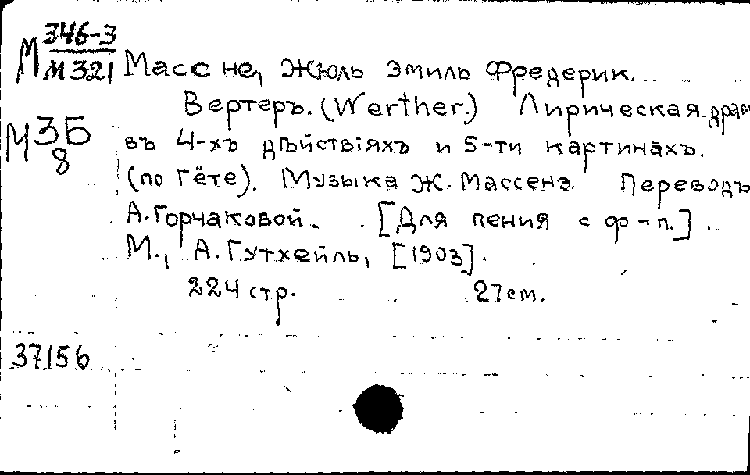 М 346-3
М321 Массне, Жюль Эмиль Фредерик.
Вертеръ. (Werther.) Лирическая драм
М 3Б
8
въ 4-хъ дѣйствіяхъ и 5-ти картинахъ.
(по Гёте). Музыка Ж. Массенэ. Переводъ
А. Горчаковой. [Для пения с ф-п.].
М., А. Гутхейль, [1903].
224 стр. 27 см.
37156